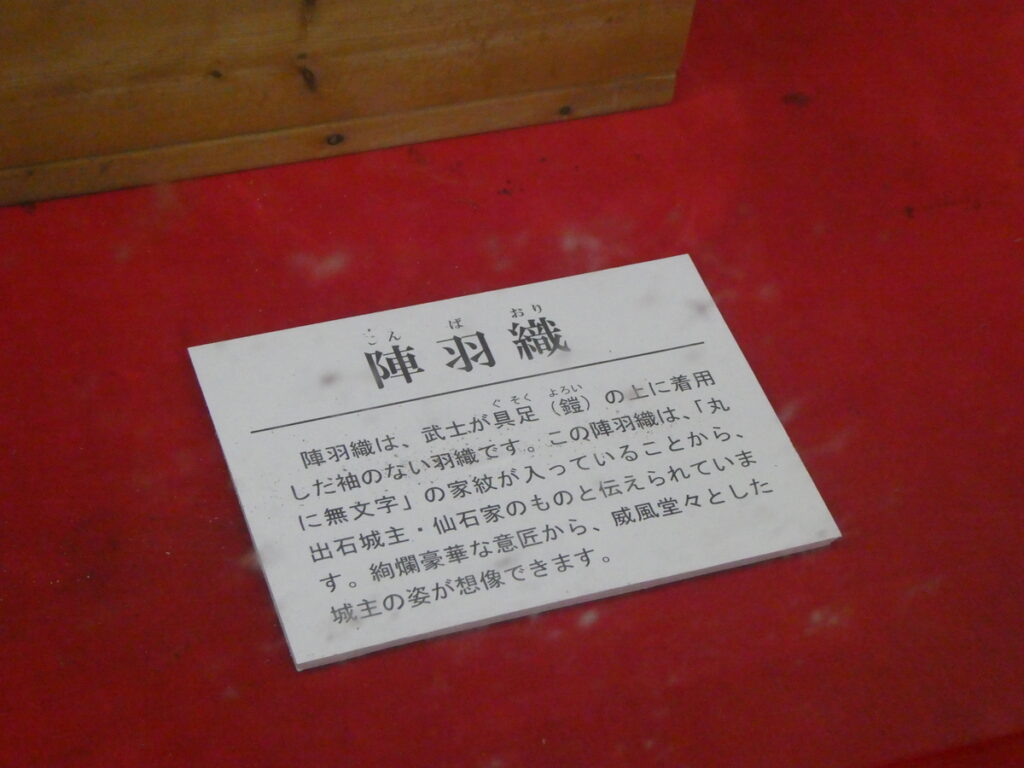 じん ば おり
陣羽織
ぐ そく よろい
陣羽織は、武士が具足(鎧)の上に着用
した袖のない羽織です。この陣羽織は、「丸
に無文字」の家紋が入っていることから、
出石城主・仙石家のものと伝えられていま
す。絢爛豪華な意匠から、威風堂々とした
城主の姿が想像できます。